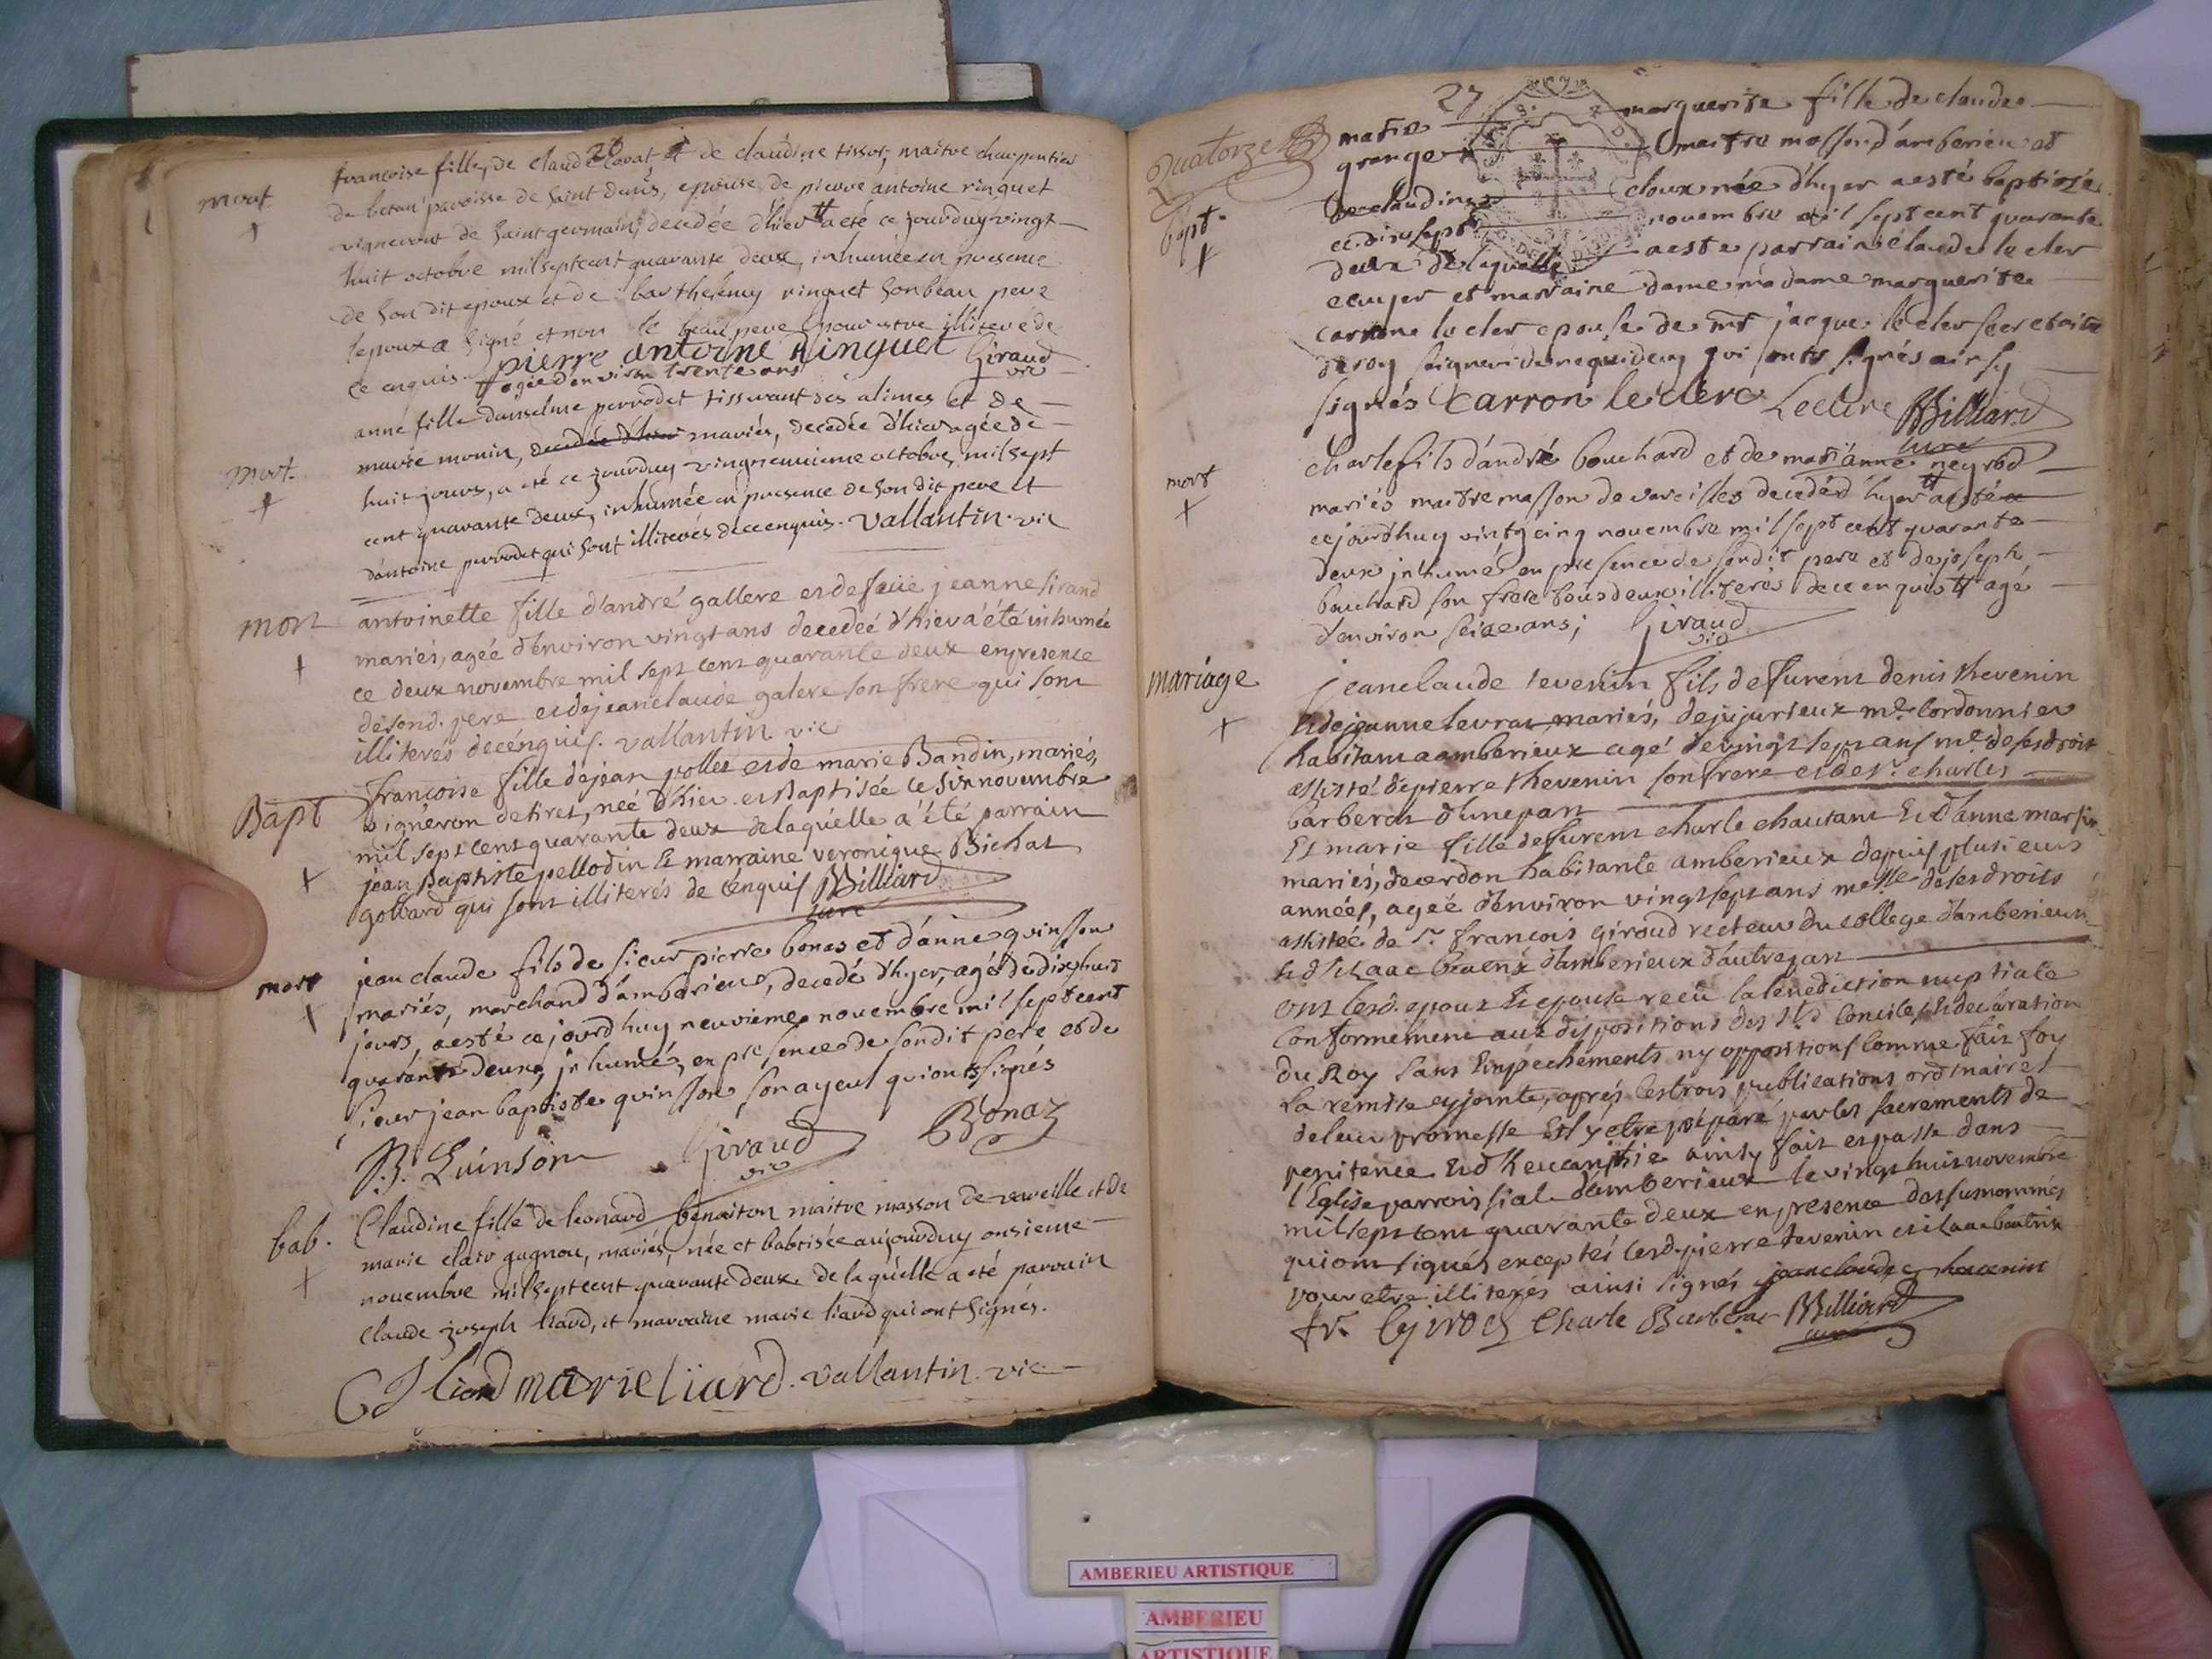 26
mort
francoise fille de claude Cavat et de claudine tissot, maitre charpentier
de betan paroisse de saint denis, epouse de pierre antoine ringuet
vigneront de saint germain, decedée d'hier # a eté ce jourduy vingt
huit octobre mil sept cent quarante deux, inhumée en presence
de son dit epoux et de barthelemy ringuet son beau pere
lepoux a signé et non le beau pere pour estre illiteré de
ce enquis. pierre antoine Ringuet Giraud vic
# agée d'environ trente ans
mort.
anne fille danselme perrodet tisserant des alimes et de
marie monin, decedée d'hier mariés, decedée d'hier agée de
huit jours, a eté ce jourduy vingneuvieme octobre, mil sept
cent quarante deux, inhumée en presence de son dit pere et
d'antoine perrodet qui sont illiterés dece enquis. vallantin. vic
mort
antoinette fille d'andré gallere et de feüe jeanne sirand
mariés, agée d'environ vingt ans decedeé d'hier a été inhumée
ce deux novembre mil sept cent quarante deux en presence
de sond. pere et de jean claude galere son frere qui sont
illiterés de cénquis. vallantin vic
Bapt
francoise fille de jean pollet et de marie Bandin, mariés,
vigneron de tiret, neé d'hier et Baptisée le six novembre
mil sept cent quarante deux de laquelle a été parrain
jean Baptiste pellodin et marraine veronique Bichat
gobard qui sont illiterés de cénquis BBilliard
curé
mort
jean claude fils de sieur pierre bonas et d'anne quinson
mariés, marchand d'amberieux, decedé d'hyer, agé de dix huit
jours, a esté ce jourd'huy neuvieme novembre mil sept cent
quarante deux, inhumé, en presence de son dit pere et de
sieur jean baptiste quinson son ayeul qui ont signés
B. Quinson Giraud vic Bonaz
bab.
Claudine fille de leonard benoiton maitre masson de vareille et de
marie clair gagnou, mariés, née et babtisée aujourduy onsieme
novembre mil sept cent quarante deux de laquelle a eté parrain
Claude joseph liard, et marraine marie liard qui ont signés.
C J liard marie liiard. vallantin. vic
27
Quatorze
bapt.
marguerite fille de claude
grange maitre masson d'amberieu et
de claudine cloux née d'hyer a esté baptisée
ce dix sept novembre mil sept cent quarante
deux de laquelle a esté parrain claude le cler
ecuyer et marraine dame madame marguerite
carron le cler epouse de mr jacque le cler secretaire
du roy qui sont signés ainsy
signés Carron le clerc Leclerc BBilliard
curé
mort
charle fils d'andré bouchard et de marianne neyrod
mariés maitre masson de vareilles decedé d'hyer # a esté
ce jourd'huy vint cinq novembre mil sept cent quarante
deux inhumé en presence de son dit pere et de joseph
bouchard son frere tous deux illiterés de ce enquis # agé
d'environ seize ans; Giraud
vic
mariage
jean claude tevenin fils de furent denis thevenin
et de jeanne levrat mariés, de jujurieux me. cordonnier
habitant a amberieux agé de vingt sept ans me. de ses droits
assisté de pierre thevenin son frere et de sr. charles
barberat d'une part
Et marie fille de furent charle chautant et d'anne
mariés, de cerdon habitante amberieux depuis plusieurs
années, agée d'environ vingt sept ans messe. de ses droits
assistée de sr. francois giroud recteur du college d'amberieux
et d'isaac d'amberieux d'autre part
ont lesd. epoux et epouse recû la benediction nuptiale
Conformement aux dispositions des sts conciles et declaration
du Roy sans Empechements ny oppositions comme fait foy
la remise cy jointe, aprés les trois publications ordinaires
de leur promesse et s'y etre preparé par les sacrements de
penitence et d'heucaristie ainsy fait et passé dans
l'Eglise parroissial d'amberieux le vingt huit novembre
mil sept cent quarante deux en presence des susnommés
qui ont signés exceptés lesd. pierre tevenin et isaac
pour etre illiterés ainsi signés jean claude thevenin
fr. Girod Charle Barberat BBilliard
curé
AMBERIEU ARTISTIQUE
AMBERIEU
ARTISTIQUE